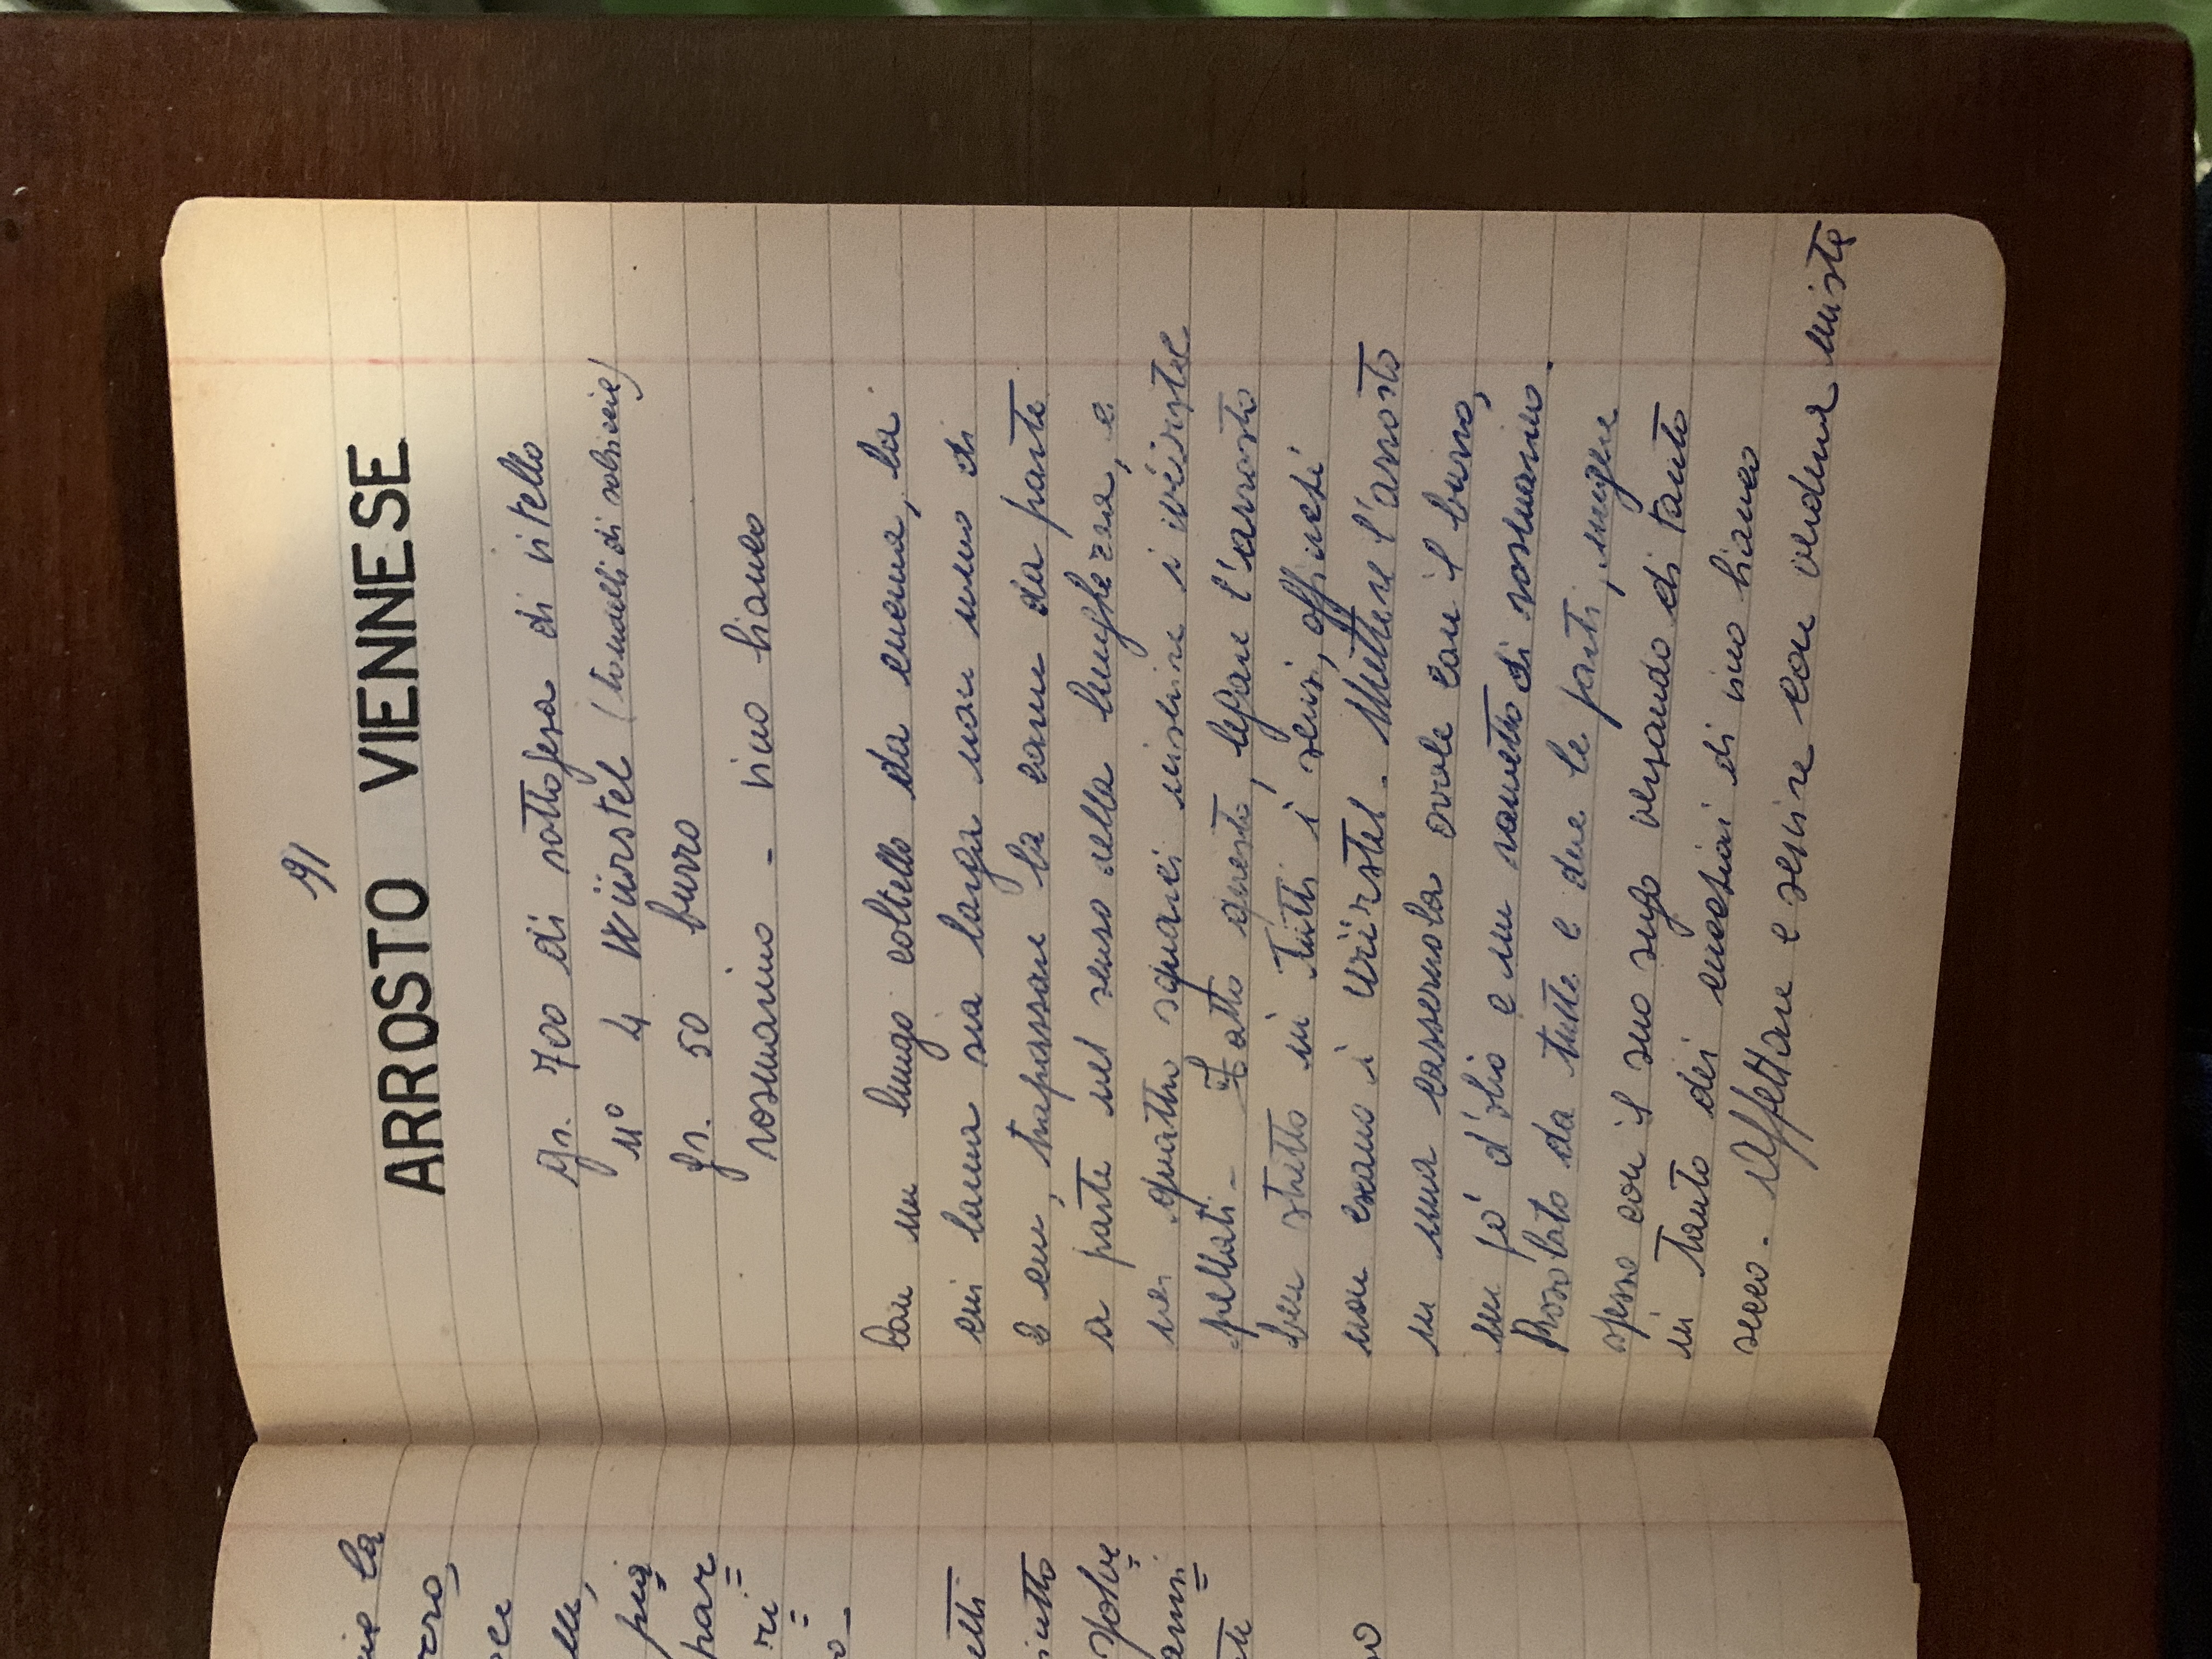 ne la
rro,
oce
elle,
più
par
ri
o_
etti
iutto
spolve
ansi
te
so
91
ARROSTO VIENNESE
gr. 700 di sottofesa di vitello
n° 4 Würstel (tondelli di salsiccie)
gr. 50 burro
rosmarino - vino bianco
Con un lungo coltello da cucina, la
cui lama sia larga non meno di
2 cm, trapassare la carne da parte
a parte nel senso della lunghezza, e
nei quattro squarci inserire i würstel
pellati - Fatto questo, legare l'arrosto
ben stretto in tutti i sensi, affinché
non escano i würstel. Mettere l'arrosto
in una casseruola ovale con il burro,
un pò' d'olio e un rametto di rosmarino.
Rosolato da tutte e due le parti, ungere
spesso con il suo sugo versando di tanto
in tanto dei cucchiai di vino bianco
secco. Affettare e servire con verdura mista